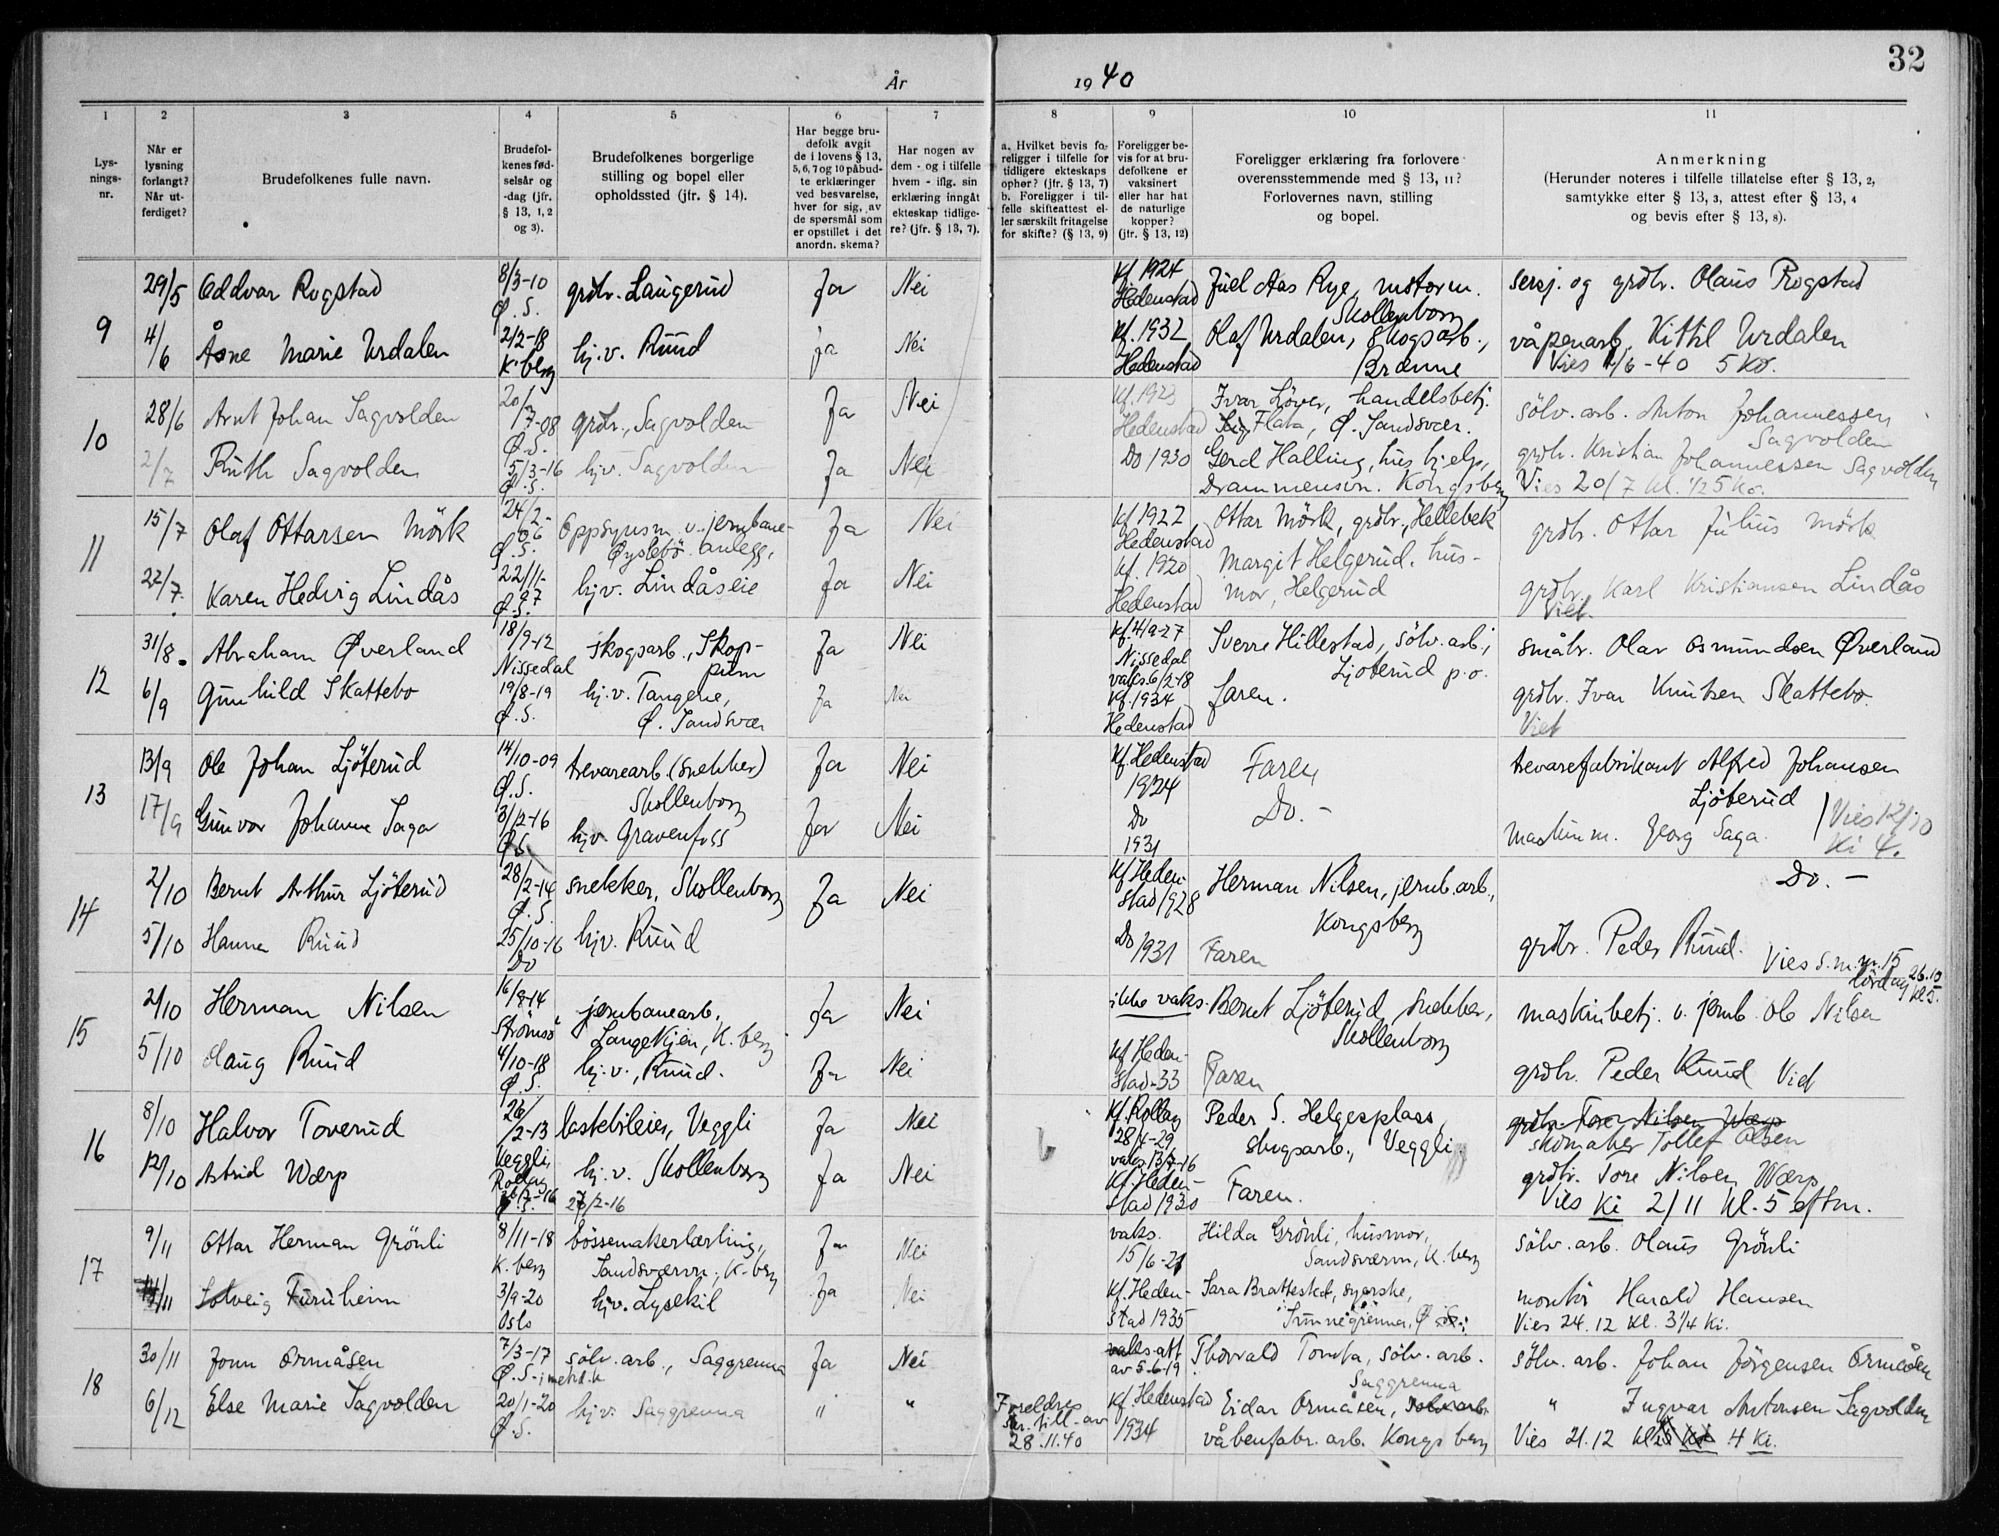 32
År 1940
1 2 3 4 5 6 7 8 9 10 11
Lysningsnr.
Når er lysning forlangt? Når utferdiget?
Brudefolkenes fulle navn.
Brudefolkenes fødselsår og -dag (jfr. § 13, 1, 2 og 3).
Brudefolkenes borgerlige stilling og bopel eller opholdssted (jfr. § 14).
Har begge brudefolk avgit de i lovens § 13, 5, 6, 7 og 10 påbudte erklæringer ved besvarelse, hver for sig, av de spørsmål som er opstillet i det anordn. skema?
Har nogen av dem - og i tilfelle hvem - iflg. sin erklæring inngått ekteskap tidligere? (jfr. § 13, 7).
a. Hvilket bevis foreligger i tilfelle for tidligere ekteskaps ophør? (jfr. § 13, 7) b. Foreligger i tilfelle skifteattest eller særskilt fritagelse for skifte? (§ 13, 9)
Foreligger bevis for at brudefolkene er vaksinert eller har hat de naturlige kopper? (jfr. § 13, 12)
Foreligger erklæring fra forlovere overensstemmende med § 13, 11? Forlovernes navn, stilling og bopel.
Anmerkning (Herunder noteres i tilfelle tillatelse efter § 13, 2, samtykke efter § 13, 3, attest efter § 13, 4 og bevis efter § 13, 8).
9
29/5 Oddvar Rogstad 8/3-10 Ø.S. grdbr. Laugerud Ja Nei Kf. 1924 Hedenstad Juel Aas Rye, motorm. Skollenborg sersj. og grdbr. Olaus Rogstad
4/6 Åsne Marie Urdalen 2/2-18 K.berg hj.v. Ruud ja Nei Kf. 1932 Hedenstad Olaf Urdalen, skogsarb., våpenarb. Kittil Urdalen
Vies /6-40 5 Ko.
10
28/6 Arnt Johan Sagvolden 20/7-08 Ø.S. grdbr., Sagvolden Ja Nei Kf. 1923 Hedenstad Ivar Ljøver, handelsbetj. Flata, Ø. Sandsvær. sølv.arb. Anton Johannessen Sagvolden
2/7 Ruth Sagvolden 5/3-16 Ø.S. hj.v. Sagvolden Ja Nei Do 1930 Gerd Halling, hushjelp, Drammensvn. Kongsberg grdbr. Kristian Johannessen Sagvolden
Vies 20/7 kl. 1/2 5 Ko.
11
15/7 Olaf Ottarsen Mörk 24/2-06 Ø.S. Oppsynsm. v. jernbaneanlegg, Øyslebö Ja Nei Kf 1922 Hedenstad Ottar Mörk, grdbr., Hellebek grdbr. Ottar Julius Mörk
22/7. Karen Hedvig Lindås 22/11-97 Ø.S. hj.v. Lindåseie Ja Nei Kf. 1920 Hedenstad Margit Helgerud, husmor, Helgerud grdbr. Karl Kristiansen Lindås
Viet
12
31/8 Abraham Øverland 18/9-12 Nissedal skogsarb., Skoppum Ja Nei Kf. 4/9-27 Nissedal vaks. 6/2-18 Sverre Hillestad, sölv.arb., Ljøterud p.o. småbr. Olav Osmundsen Øverland
6/9 Gunhild Skattebo 19/8-19 Ø.S. hj.v. Tangene, Ø. Sandsvær Ja Nei Kf. 1934 Hedenstad faren. grdbr. Ivar Knutsen Skattebo.
Viet
13
13/9 Ole Johan Ljöterud 14/10-09 Ø.S. trevarearb. (snekker) Skollenborg Ja Nei Kf. Hedenstad 1924 Faren trevarefabrikant Alfred Johansen Ljöterud
17/9 Gunvor Johanne Saga 3/2-16 Ø.S. hjv. Gravenfoss Ja Nei Do 1931 Do. - maskinm. Georg Saga.
Vies 12/10 Ki 4.
14
2/10 Bernt Arthur Ljöterud 28/2-14 Ø.S. snekker, Skollenborg Ja Nei Kf Hedenstad 1928 Herman Nilsen, jernb.arb., Kongsberg Do. -
5/10 Hanna Ruud 25/10-16 Do hjv. Ruud Do 1931 Faren grdbr. Peder Ruud.
Vies s.m. nr. 15 lördag 26.10 kl 5.
15
2/10 Herman Nilsen 16/8-14 Strömsö jernbanearb. Ja Nei ikke vaks. Bernt Ljöterud, snekker, Skollenborg maskinbetj. v. jernb. Ole Nilsen
5/10 Olaug Ruud 4/10-18 Ø.S. hj.v., Ruud. Ja Nei Kf Hedenstad-33 Faren grdbr. Peder Ruud Viet
16
8/10 Halvor Toverud 26/2-13 Veggli, Rollag lastebileier, Veggli Ja Nei Kf. Rollag 28/4-29 vaks 13/7-16 Peder S. Helgesplass, skogsarb., Veggli grdbr. Tore Nilsen Wærp
skomaker Tollef Olsen
12/10 Astrid Wærp Ø.S. 27/2-16 hj.v. Skollenborg Ja Nei Kf. Hedenstad 1930 Faren. grdbr. Tore Nilsen Wærp
Vies Ki 2/11 kl. 5 eftm.
17
9/11 Ottar Herman Grönli 8/11-18 K.berg bössemakerlærling, Sandsværvn., K-berg Ja Nei vaks. 15/6-21 Hilda Grönli, husmor, Sandsværvn, K.berg sölv.arb. Olaus Grönli
/11 Solveig Furuheim 3/9-20 Oslo hjv. Lysekil Ja Nei Kf. Hedenstad 1935 Sara Bratteste, syerske, montör Harald Hansen
Vies 24.12 kl. 3/4 Ki.
18
30/11 Jonn Ormåsen 7/3-17 Ø.S. sölv.arb., Saggrenna Ja Nei vaks.att av 5.6-19 Thorvald Tomta, sölv.arb. Saggrenna sölv.arb. Johan Jörgensen Ormåsen
6/12 Else Marie Sagvolden 20/1-20 Ø.S. hj.v. Saggrenna " " Foreldres skr. till. av 28.11.40 Kf. Hedenstad 1934 Eidar Ormåsen, våbenfabr.arb. Kongsberg " Ingvar Antonsen Sagvolden
Vies 21.12 kl 4 Ki.